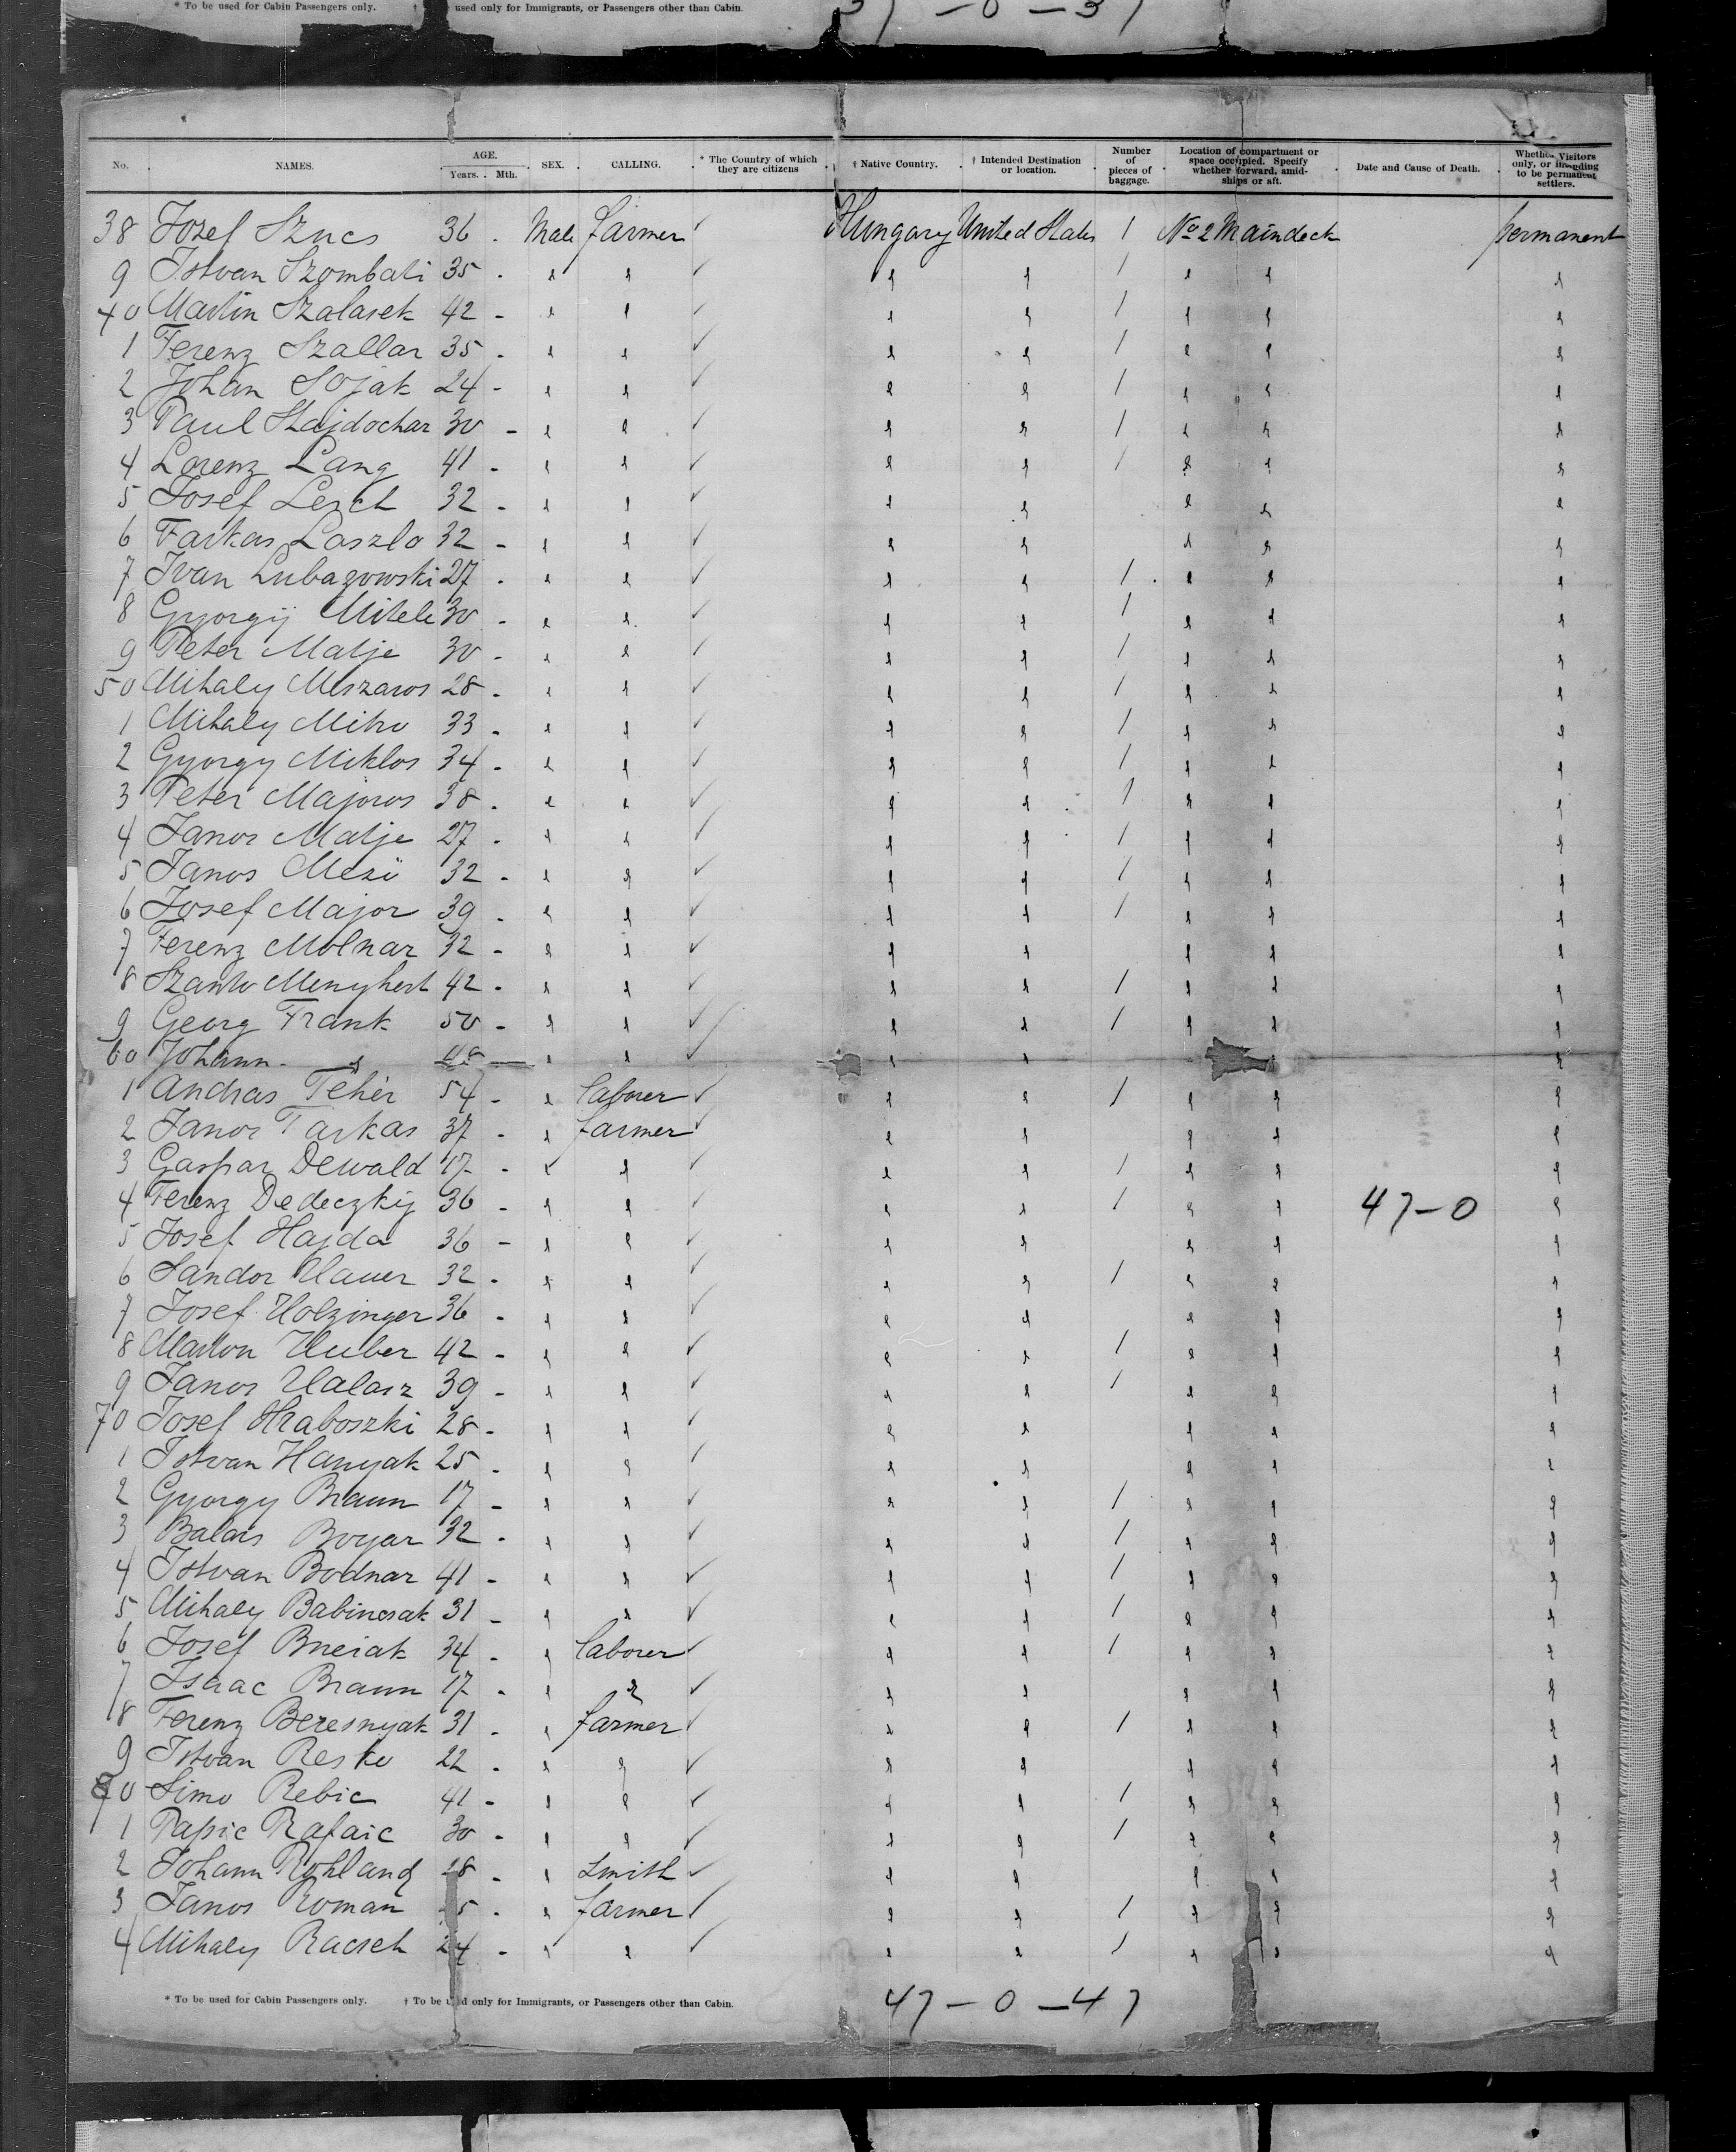 * To be used for Cabin Passengers only. † used only for Immigrants, or Passengers other than Cabin.
37 - 0 - 37
No. NAMES. AGE. Years. Mth. SEX. CALLING. * The Country of which they are citizens † Native Country. † Intended Destination or location. Number of pieces of baggage. Location of compartment or space occupied. Specify whether forward, amidships or aft. Date and Cause of Death. Whether Visitors only, or intending to be permanent settlers.
38 Jozef Szucs 36 . Male farmer ✓ Hungary United States 1 No 2 Maindeck permanent
9 Istvan Szombati 35 . " " ✓ " " 1 " " "
40 Martin Szalasek 42 - " " ✓ " " 1 " " "
1 Ferenz Szallar 35 . " " ✓ " " 1 " " "
2 Johan Sojak 24 - " " ✓ " " 1 " " "
3 Paul Hajdochar 30 - " " ✓ " " 1 " " "
4 Lorenz Lang 41 - " " ✓ " " 1 " " "
5 Josef Lerch 32 - " " ✓ " " " " "
6 Farkas Laszlo 32 - " " ✓ " " " " "
7 Ivan Lubazowski 27 . " " ✓ " " 1 " " "
8 Gyorgij Mitele 30 - " " ✓ " " 1 " " "
9 Peter Matje 30 - " " ✓ " " 1 " " "
50 Mihaly Meszaros 28 - " " ✓ " " 1 " " "
1 Mihaly Mitro 33 - " " ✓ " " 1 " " "
2 Gyorgy Miklos 34 - " " ✓ " " 1 " " "
3 Peter Majoros 38 . " " ✓ " " 1 " " "
4 Janos Matje 27 - " " ✓ " " 1 " " "
5 Janos Mezö 32 - " " ✓ " " 1 " " "
6 Josef Major 39 . " " ✓ " " 1 " " "
7 Ferenz Molnar 32 - " " ✓ " " " " "
8 Szanto Menyhert 42 . " " ✓ " " 1 " " "
9 Georg Frank 50 - " " ✓ " " 1 " " "
60 Johann " 48 - " " ✓ " " " "
1 Andras Feher 54 - " laborer ✓ " " 1 " " "
2 Janos Farkas 37 - " farmer ✓ " " " " "
3 Gaspar Dewald 17 - " " ✓ " " 1 " " "
4 Ferenz Dedeczkij 36 - " " ✓ " " 1 " " 47-0 "
5 Josef Hajda 36 - " " ✓ " " " " "
6 Sandor Hauer 32 - " " ✓ " " 1 " " "
7 Josef Holzinger 36 - " " ✓ " " " " "
8 Marton Huber 42 - " " ✓ " " 1 " " "
9 Janos Halasz 39 - " " ✓ " " 1 " " "
70 Josef Hraboszki 28 - " " ✓ " " " " "
1 Istvan Hanyak 25 . " " ✓ " " " " "
2 Gyorgy Braun 17 - " " ✓ " " 1 " " "
3 Balas Boyar 32 . " " ✓ " " 1 " " "
4 Istvan Bodnar 41 - " " ✓ " " 1 " " "
5 Mihaly Babincsak 31 - " " ✓ " " 1 " " "
6 Josef Bneiak 34 - " laborer ✓ " " 1 " " "
7 Isaac Braun 17 - " " ✓ " " " " "
8 Ferenz Beresnyak 31 - " farmer ✓ " " 1 " " "
9 Istvan Resko 22 . " " ✓ " " " " "
80 Simo Rebic 41 - " " ✓ " " 1 " " "
1 Papic Rafaic 30 - " " ✓ " " 1 " " "
2 Johann Rohland 28 - " smith ✓ " " " " "
3 Janos Roman 5 . " farmer ✓ " " 1 " " "
4 Mihaly Racseh 24 - " " ✓ " " 1 " " "
* To be used for Cabin Passengers only. † To be used only for Immigrants, or Passengers other than Cabin.
47 - 0 - 47